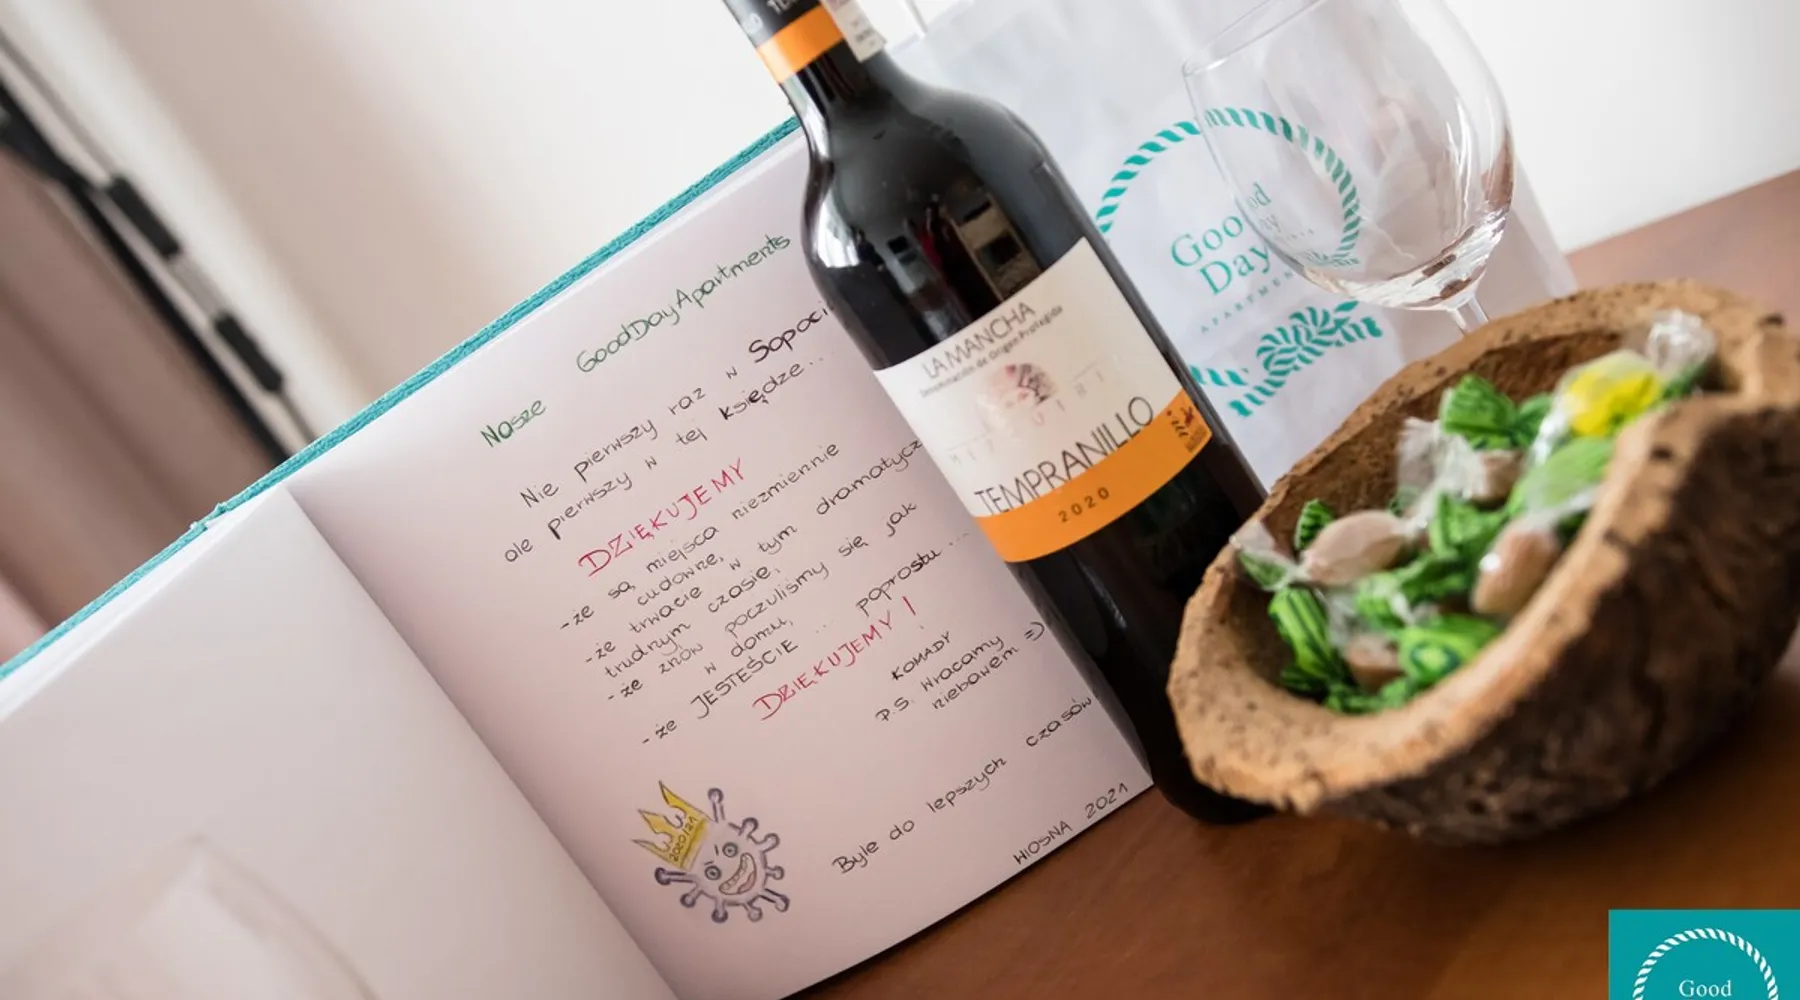 Nasze GoodDayApartments
Nie pierwszy raz w Sopoci
ale pierwszy w tej księdze...
DZIĘKUJEMY
-że są miejsca niezmiennie
cudowne,
-że trwacie w tym dramatycz
trudnym czasie,
-że znów poczuliśmy się jak
w domu,
-że JESTEŚCIE ... poprostu ...
DZIĘKUJEMY!
KOMADY
P.S. Wracamy
niebawem =)
Byle do lepszych czasów
WIOSNA 2021
2020/21
LA MANCHA
Denominación de Origen Protegida
TEMPRANILLO
2020
Good
Day
APARTMENT
Good